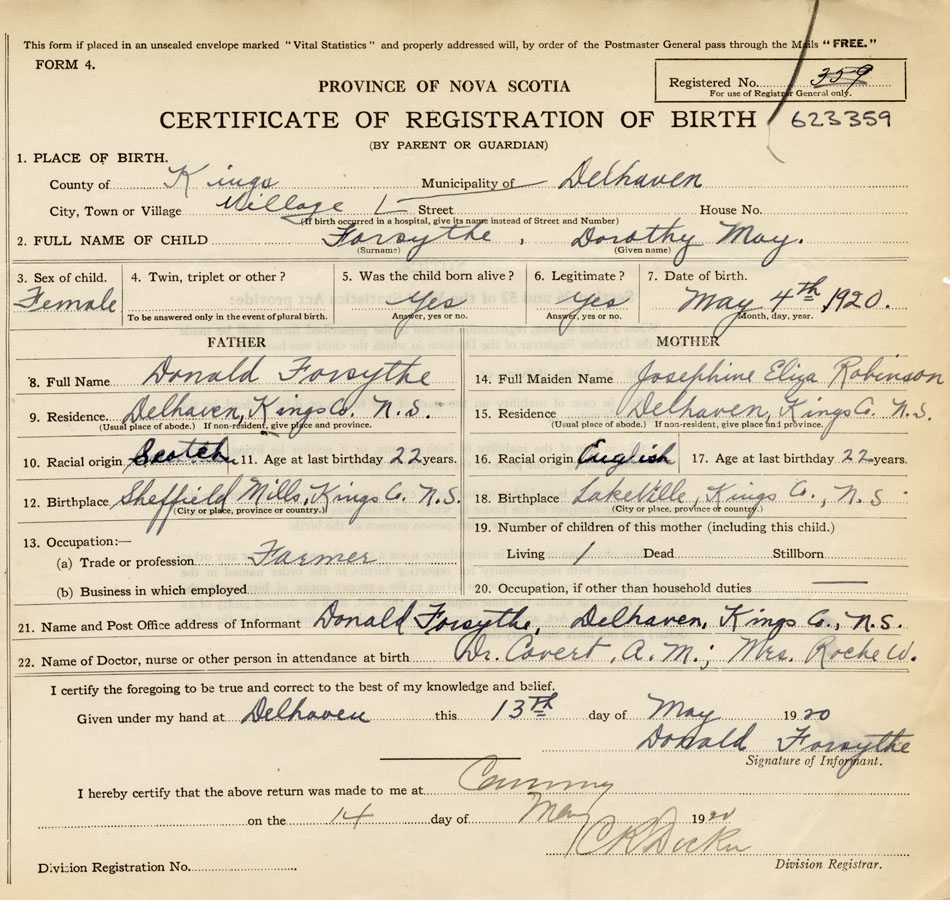 This form if placed in an unsealed envelope marked "Vital Statistics" and properly addressed will, by order of the Postmaster General pass through the Mails "FREE."
FORM 4.
PROVINCE OF NOVA SCOTIA
Registered No. 359
For use of Registrar General only.
CERTIFICATE OF REGISTRATION OF BIRTH 623359
(BY PARENT OR GUARDIAN)
1. PLACE OF BIRTH.
County of Kings Municipality of Delhaven
City, Town or Village Village Street House No.
(If birth occurred in a hospital, give its name instead of Street and Number)
2. FULL NAME OF CHILD Forsythe, Dorothy May.
(Surname) (Given name)
3. Sex of child. 4. Twin, triplet or other? 5. Was the child born alive? 6. Legitimate? 7. Date of birth.
Female Yes Yes May 4th, 1920.
To be answered only in the event of plural birth. Answer, yes or no. Answer, yes or no. Month, day, year.
FATHER MOTHER
8. Full Name Donald Forsythe 14. Full Maiden Name Josephine Eliza Robinson
9. Residence. Delhaven, Kings Co. N.S. 15. Residence Delhaven, Kings Co. N.S.
(Usual place of abode.) If non-resident, give place and province. (Usual place of abode.) If non-resident, give place and province.
10. Racial origin Scotch 11. Age at last birthday 22 years. 16. Racial origin English 17. Age at last birthday 22 years.
12. Birthplace Sheffield Mills, Kings Co. N.S. 18. Birthplace Lakeville, Kings Co., N.S.
(City or place, province or country.) (City or place, province or country.)
13. Occupation:— 19. Number of children of this mother (including this child.)
(a) Trade or profession Farmer Living 1 Dead Stillborn
(b) Business in which employed 20. Occupation, if other than household duties
21. Name and Post Office address of Informant Donald Forsythe, Delhaven, Kings Co., N.S.
22. Name of Doctor, nurse or other person in attendance at birth Dr. Covert, A.M.; Mrs. Roche W.
I certify the foregoing to be true and correct to the best of my knowledge and belief.
Given under my hand at Delhaven this 13th day of May 1920
Donald Forsythe
Signature of Informant.
I hereby certify that the above return was made to me at
on the 14 day of May 1920
Division Registration No.
Division Registrar.